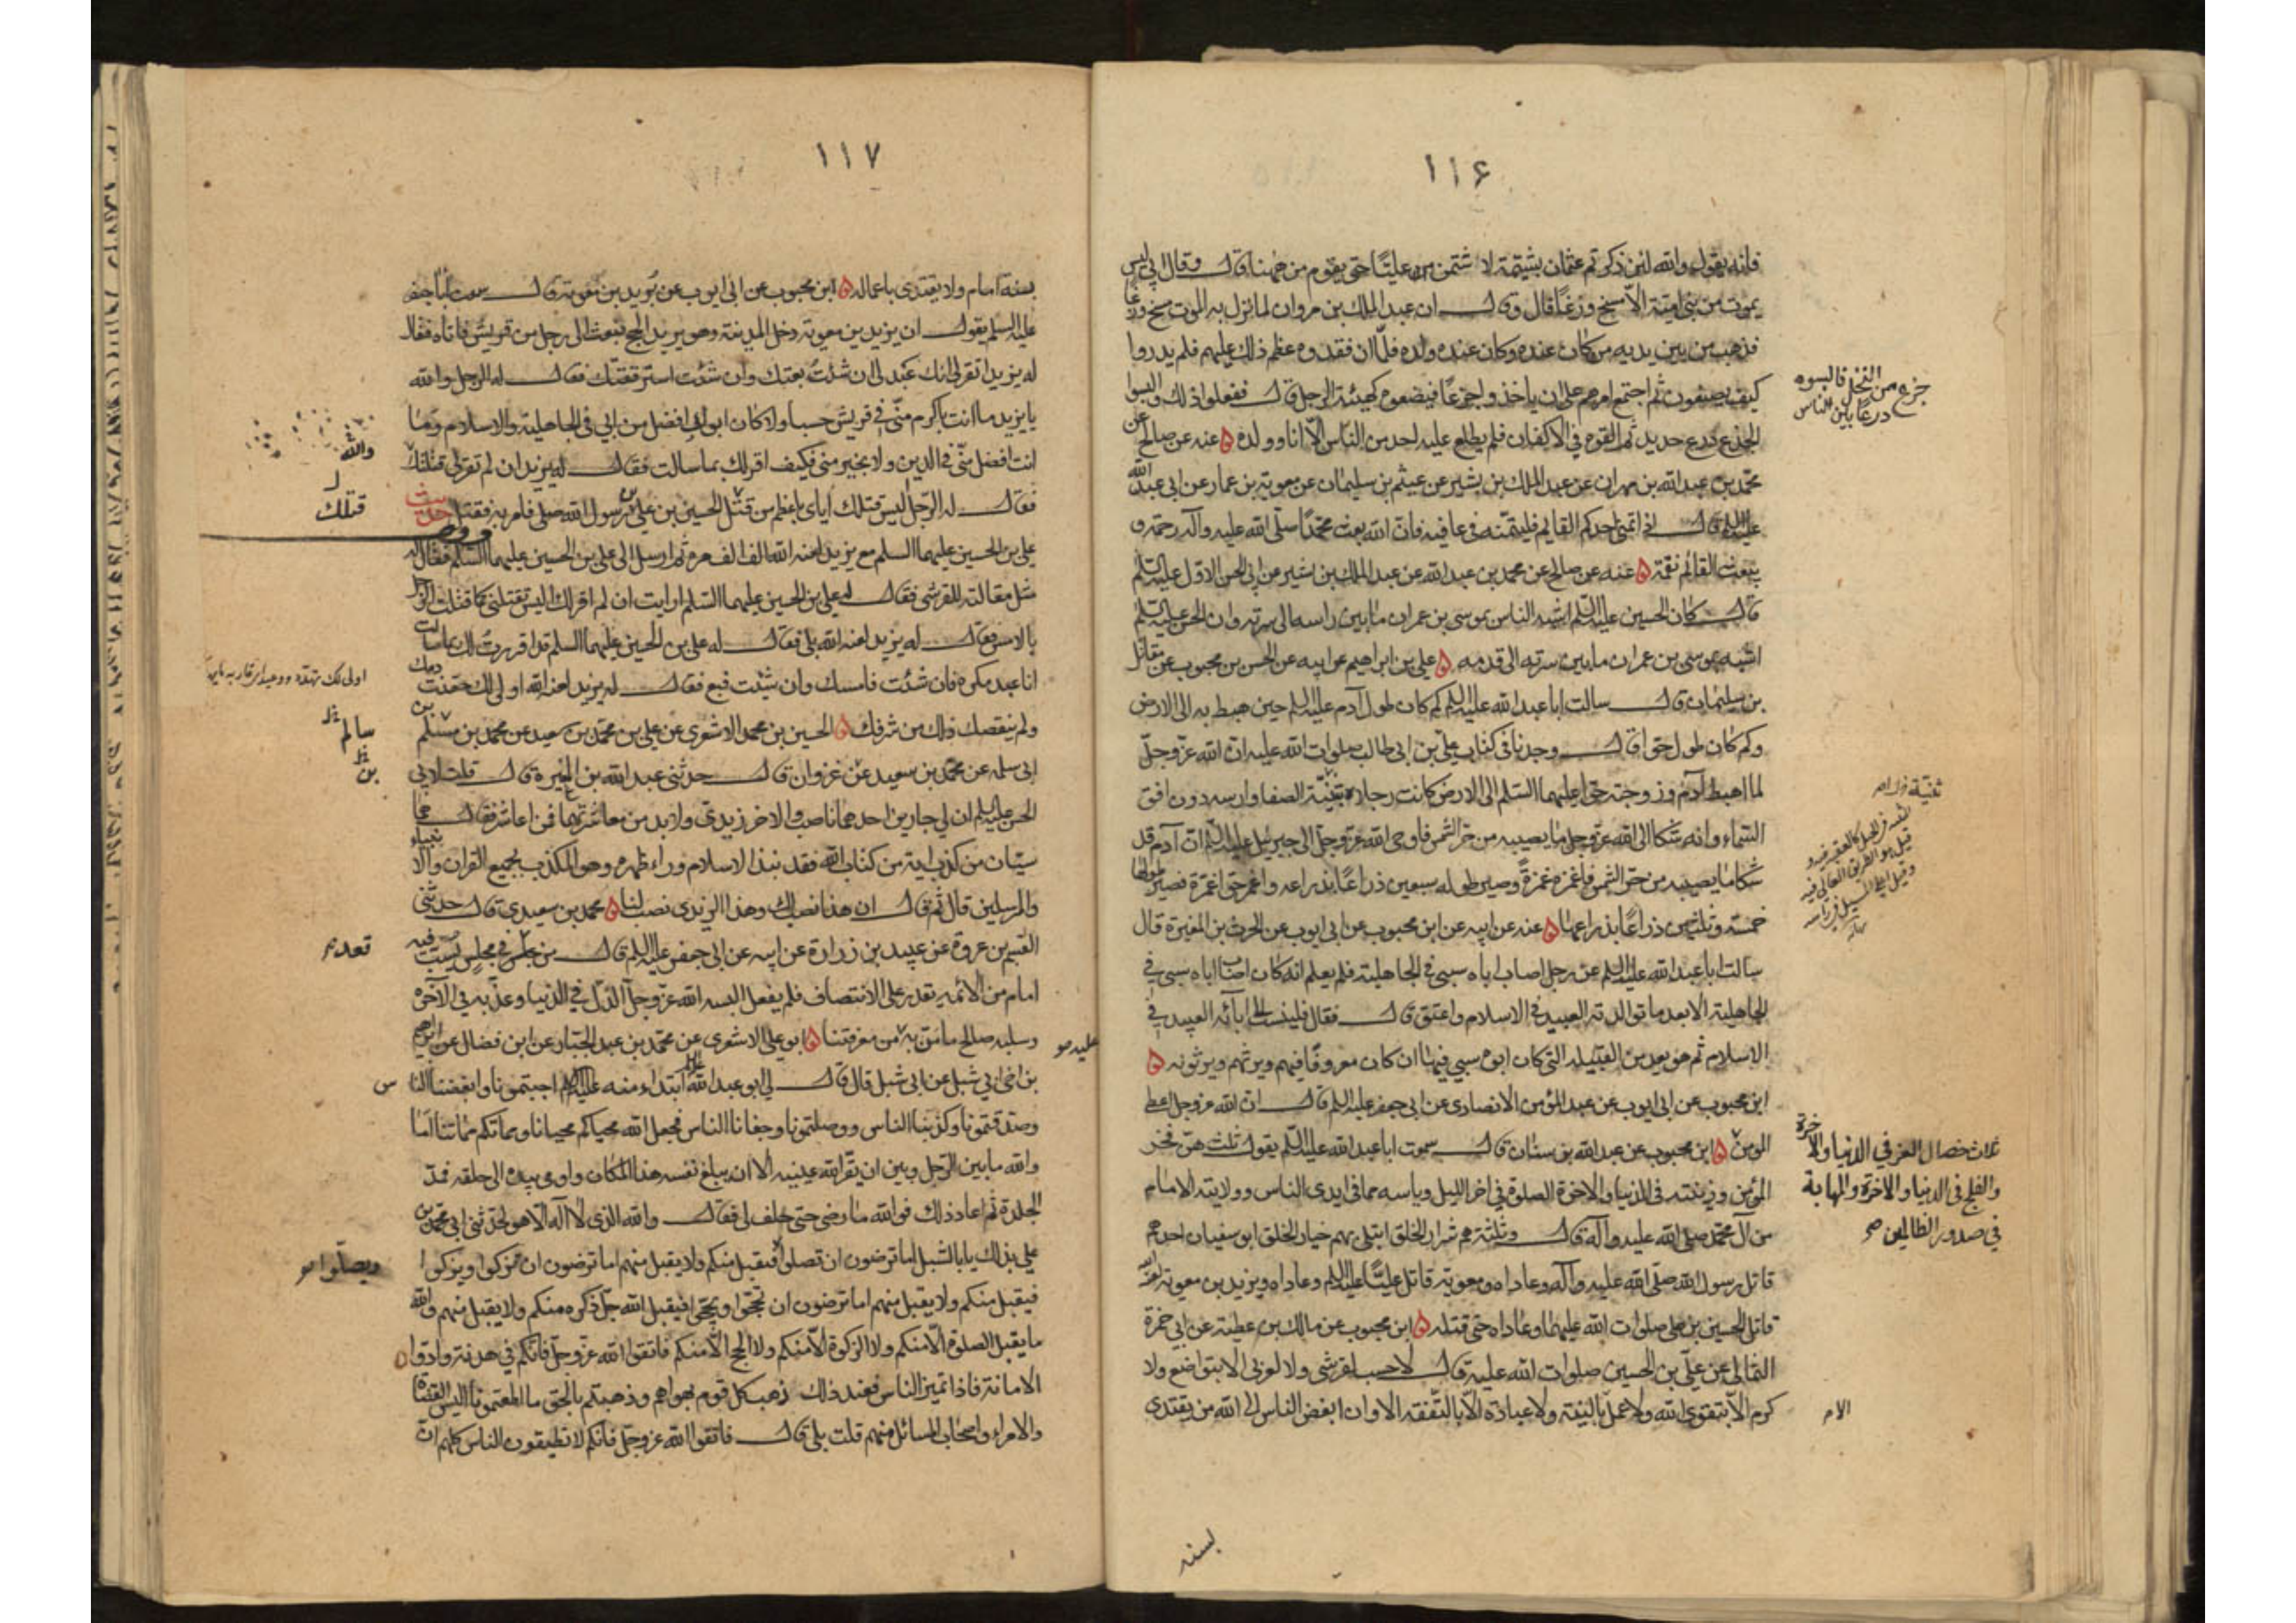 ١١۶
فانه يقول والله لئن ذكرتم عثمان بشتيمة لا شتمن عليّا حتى يقوم من ههنا قال وقال ابي ليس
يموت من بني امية الا مسخ وزغًا قال وقال ان عبد الملك بن مروان لما نزل به الموت مسخ وزغا
فذهب من بين يديه من كان عنده وكان عنده ولده فلما ان فقدوه عظم ذلك عليهم فلم يدروا
كيف يصنعون ثم اجتمع امرهم على ان ياخذوا جذعًا فيضعوه كهيئة الرجل قال ففعلوا ذلك والبسوا
الجذع درع حديد ثم القوه في الاكفان فلم يطلع عليه احد من الناس الا انا وولده ه عنه عن صالح عن
محمد بن عبد الله بن مهران عن عبد الملك بن بشير عن عيثم بن سليمان عن معوية بن عمار عن ابي عبد الله
عليه السلم قال اذا تمنى احدكم القايم فليتمنه في عافية فان الله بعث محمدًا صلى الله عليه وآله رحمة و
يبعث القائم نقمة ه عنه عن صالح عن محمد بن عبد الله عن عبد الملك بن بشير عن ابي الحسن الاول عليه السلم
قال كان الحسين عليه السلم اشبه الناس بموسى بن عمران ما بين راسه الى سرته وان الحسن عليه السلم
اشبه بموسى بن عمران ما بين سرته الى قدمه ه علي بن ابراهيم عن ابيه عن الحسن بن محبوب عن مقاتل
بن سليمان قال سالت ابا عبد الله عليه السلم كم كان طول آدم عليه السلم حين هبط به الى الارض
وكم كان طول حوا قال وجدنا في كتاب علي بن ابي طالب صلوات الله عليه ان الله عز وجل
لما اهبط آدم وزوجته حوا عليهما السلم الى الارض كانت رجلاه بثنية الصفا وراسه دون افق
السماء وانه شكا الى الله عز وجل ما يصيبه من حر الشمس فاوحى الله عز وجل الى جبرئيل عليه السلم ان آدم قد
شكا ما يصيبه من حر الشمس فاغمزه غمزةً وصير طوله سبعين ذراعًا بذراعه واغمز حوا غمزة فصير طولها
خمسة وثلثين ذراعًا بذراعها ه عنه عن ابيه عن ابن محبوب عن ابي ايوب عن الحرث بن المغيرة قال
سالت ابا عبد الله عليه السلم عن رجل اصاب اباه سبي في الجاهلية فلم يعلم انه كان اصاب اباه سبي في
الجاهلية الا بعد ما توالدته العبيد في الاسلام واعتق قال فقال فلينسب الى آبائه العبيد في
الاسلام ثم هو يعد من القبيلة التي كان ابوه سبي فيها ان كان معروفًا فيهم ويرثهم ويرثونه ه
ابن محبوب عن ابي ايوب عن عبد المؤمن الانصاري عن ابي جعفر عليه السلم قال ان الله عز وجل اعطى
المومن ه ابن محبوب عن عبد الله بن سنان قال سمعت ابا عبد الله عليه السلم يقول ثلث هن فخر
المؤمن وزينته في الدنيا والآخرة الصلوة في اخر الليل وياسه مما في ايدي الناس وولايته الامام
من آل محمد صلى الله عليه وآله قال وثلثة هم شرار الخلق ابتلي بهم خيار الخلق ابو سفيان احدهم
قاتل رسول الله صلى الله عليه وآله وعاداه ومعوية قاتل عليّا عليه السلم وعاداه ويزيد بن معوية لعنه الله
قاتل الحسين بن علي صلوات الله عليهما وعاداه حتى قتله ه ابن محبوب عن مالك بن عطية عن ابي حمزة
الثمالي عن علي بن الحسين صلوات الله عليه قال لا حسب لقرشي ولا لعربي الا بتواضع ولا
كرم الا بتقوى الله ولا عمل بالنية ولا عبادة الا بالتفقه الا وان ابغض الناس الى الله من يقتدي
جزع من النخل فالبسوه
درعًا بين الناس
ثلاث خصال العز في الدنيا والآخرة
والفلج في الدنيا والآخرة والمهابة
في صدور الظالمين صح
الام
بسنة
١١٧
بسنة امام ولا يقتدى باعماله ه ابن محبوب عن ابي ايوب عن بريد بن معوية قال سمعت ابا جعفر
عليه السلم يقول ان يزيد بن معوية دخل المدينة وهو يريد الحج فبعث الى رجل من قريش فاتاه فقال
له يزيد اتقر لي انك عبد لي ان شئت بعتك وان شئت استرققتك فقال له الرجل والله
يا يزيد ما انت باكرم مني في قريش حسبا ولا كان ابوك افضل من ابي في الجاهلية والاسلام وما
انت افضل مني في الدين ولا بخير مني فكيف اقر لك بما سالت فقال له يزيد ان لم تقر لي قتلتك
فقال له الرجل ليس قتلك اياي باعظم من قتل الحسين بن علي بن رسول الله صلى فامر به فقتل حديث
علي بن الحسين عليهما السلم مع يزيد لعنه الله الف الف مرة ثم ارسل الى علي بن الحسين عليهما السلم فقال له
مثل مقالته للقرشي فقال له علي بن الحسين عليهما السلم ارايت ان لم اقر لك اليس تقتلني كما قتلت الرجل
بالامس فقال له يزيد لعنه الله بلى فقال له علي بن الحسين عليهما السلم قد اقررت لك بما سالت
انا عبد مكره فان شئت فامسك وان شئت فبع فقال له يزيد لعنه الله اولى لك حقنت دمك
ولم ينقصك ذلك من شرفك ه الحسين بن محمد الاشعري عن علي بن محمد بن سعيد عن محمد بن مسلم بن
ابي سلمة عن محمد بن سعيد عن غزوان قال حدثني عبد الله بن المغيرة قال قلت لابي
الحسن عليه السلم ان لي جارين احدهما ناصب والاخر زيدي ولا بد من معاشرتهما فمن اعاشر فقال هما
سيّان من كذب باية من كتاب الله فقد نبذ الاسلام وراء ظهره وهو المكذب بجميع القران والانبياء
والمرسلين قال ثم قال ان هذا نصب لك وهذا الزيدي نصب لنا ه محمد بن سعيد قال حدثني
القسم بن عروة عن عبيد بن زرارة عن ابيه عن ابي جعفر عليه السلم قال من جلس في مجلس يسب فيه
امام من الائمة يقدر على الانتصاف فلم يفعل البسه الله عز وجل الذل في الدنيا وعذبه في الآخرة
وسلبه صالح ما من به من معرفتنا ه ابو علي الاشعري عن محمد بن عبد الجبار عن ابن فضال عن ابراهيم
بن اخي ابي شبل عن ابي شبل قال قال لي ابو عبد الله ابتداء منه عليه السلم احببتمونا وابغضنا النا
وصدقتمونا وكذبنا الناس ووصلتمونا وجفانا الناس فجعل الله محياكم محيانا ومماتكم مماتنا اما
والله ما بين الرجل وبين ان يقر الله عينيه الا ان يبلغ نفسه هذا المكان واومى بيده الى حلقه فمد
الجلدة ثم اعاد ذلك فوالله ما رضي حتى حلف لي فقال والله الذي لا اله الا هو لحدثني ابي محمد بن
علي بذلك يا با الشبل اما ترضون ان تصلوا فيقبل منكم ولا يقبل منهم اما ترضون ان تزكوا ويزكوا
فيقبل منكم ولا يقبل منهم اما ترضون ان تحجوا ويحجوا فيقبل الله جل ذكره منكم ولا يقبل منهم والله
ما يقبل الصلوة الا منكم ولا الزكوة الا منكم ولا الحج الا منكم فاتقوا الله عز وجل فانكم في هدنة وادوا
الامانة فاذا تميز الناس فعند ذلك ذهب كل قوم بهواهم وذهبتم بالحق ما اطعتمونا اليس القضاة
والامراء واصحاب المسائل منهم قلت بلى قال فاتقوا الله عز وجل فانكم لا تطيقون الناس كلهم ان
والله
قتلك
سالم
بن
قعد
عليه
س
ويصلوا